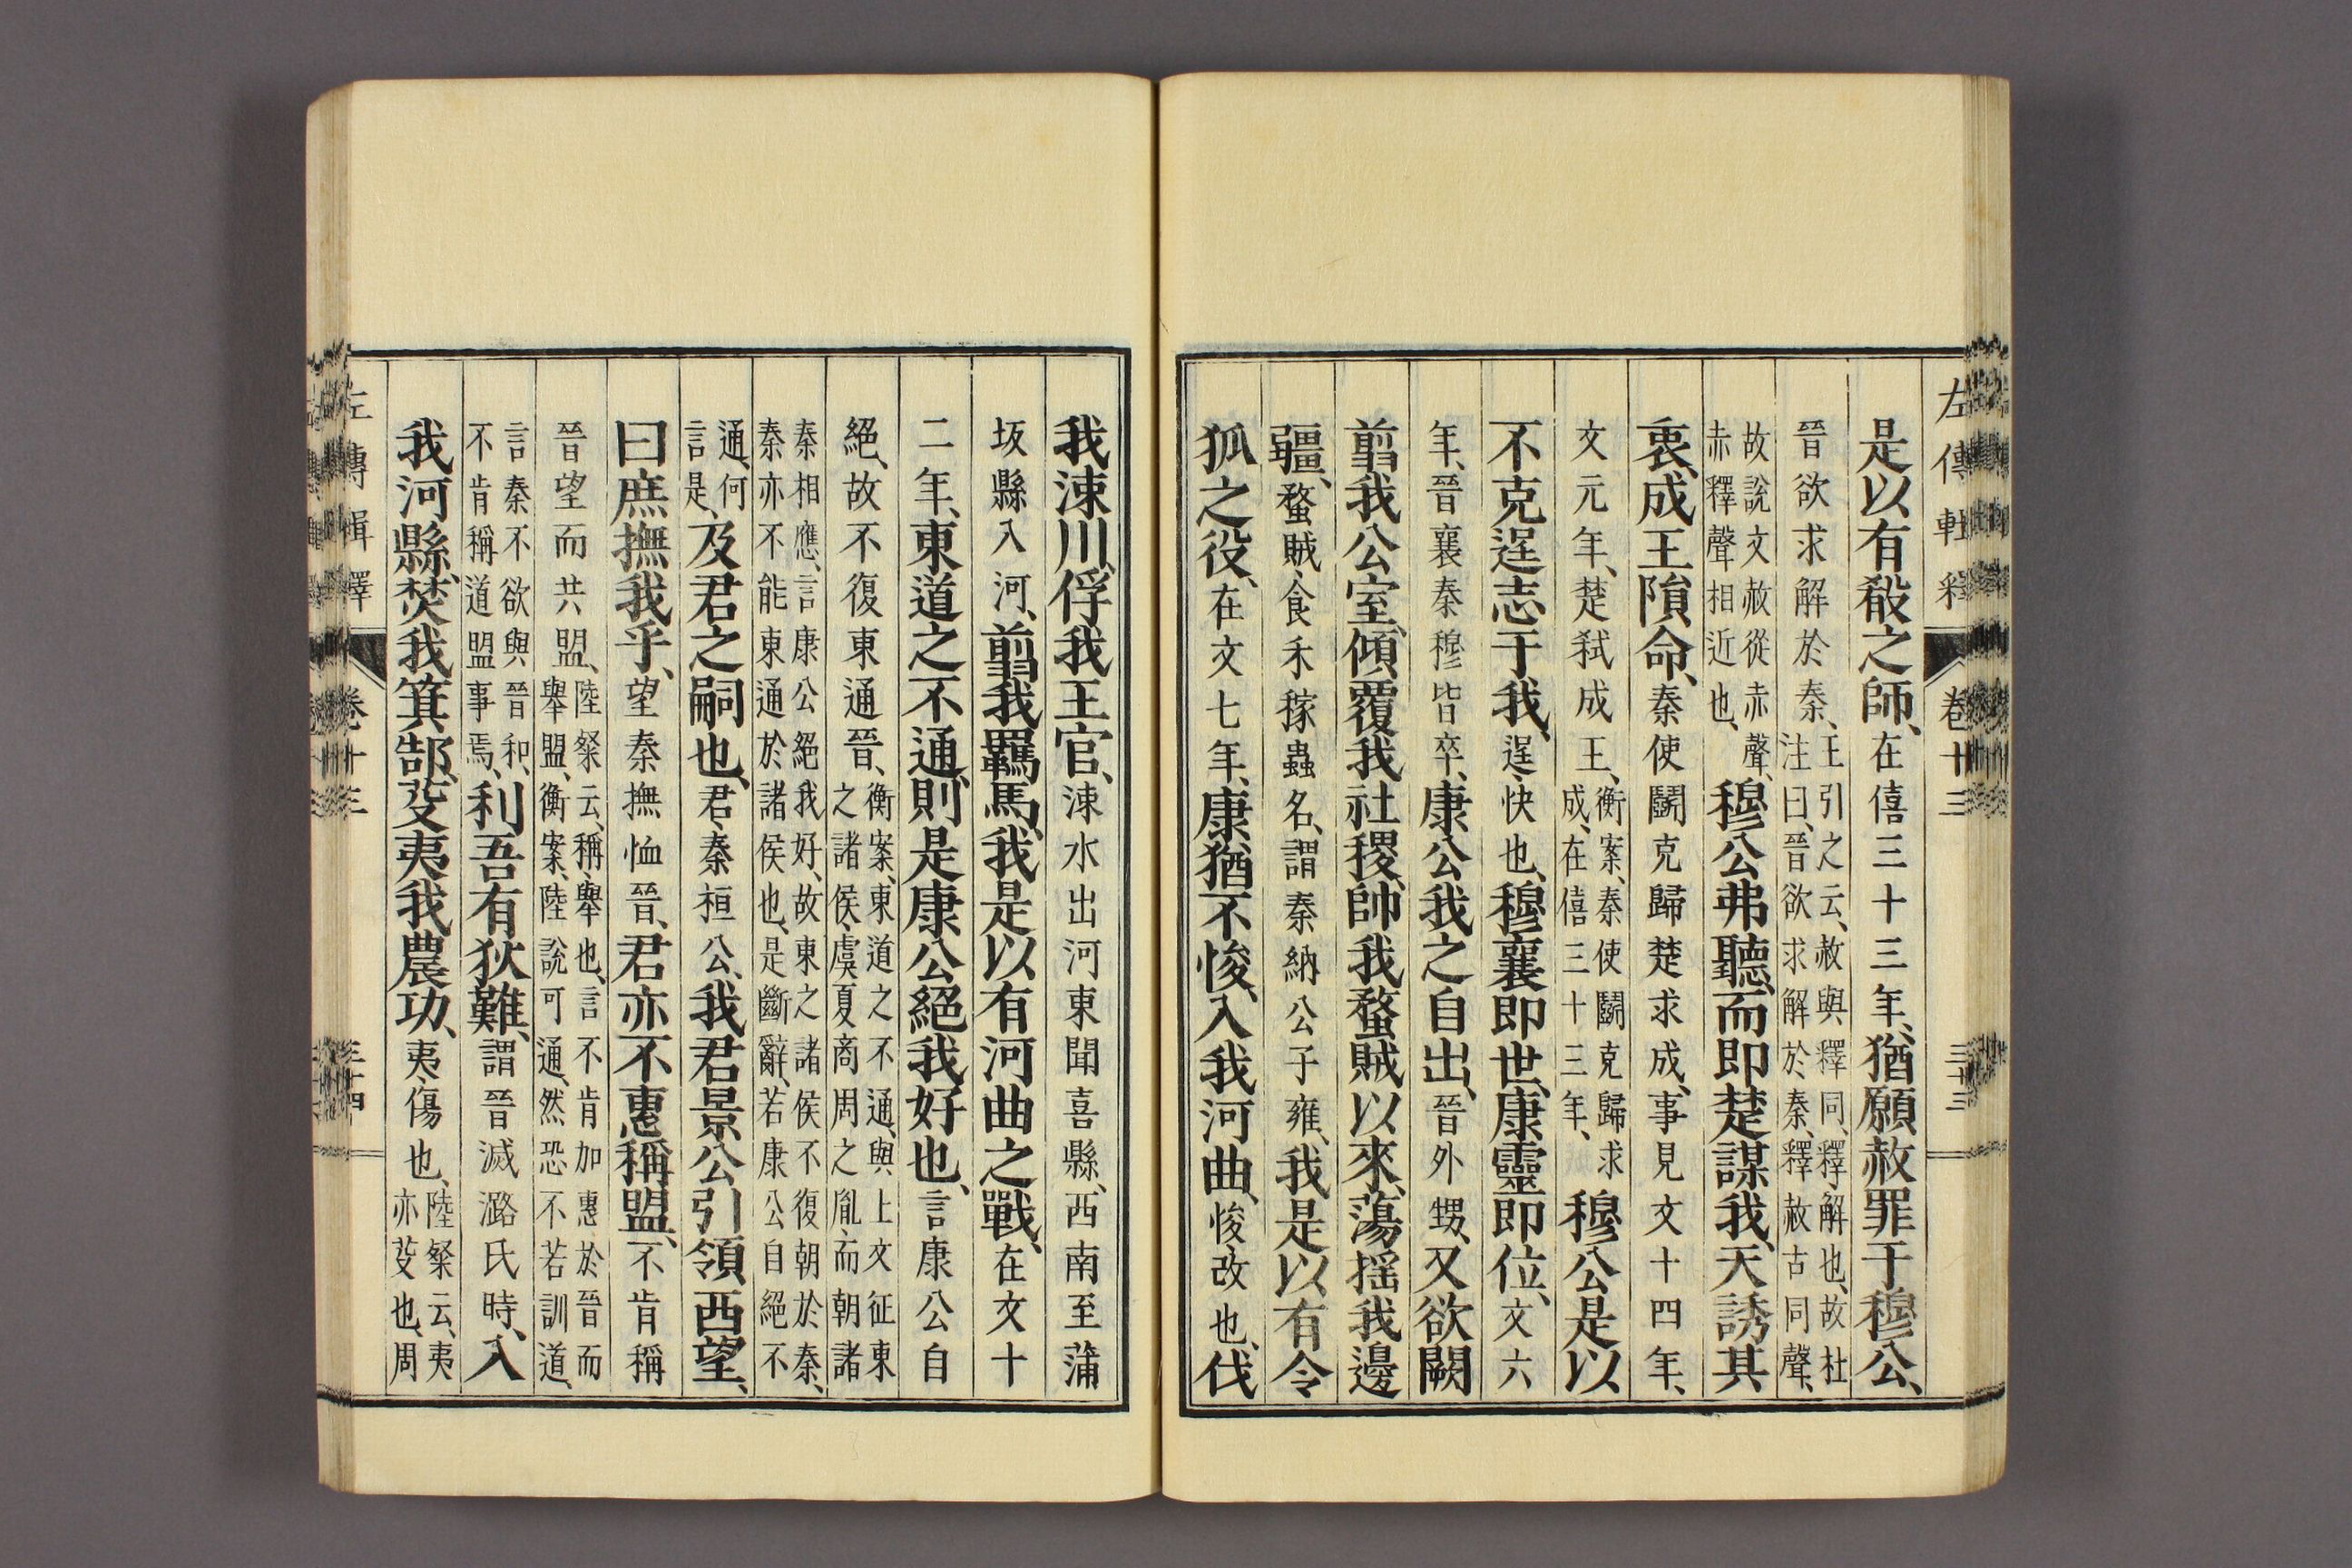 左傳輯釋 卷十三 三十三
是以有殽之師、在僖三十三年、猶願赦罪于穆公、
晉欲求解於秦、王引之云、赦與釋同、釋、解也、故杜注曰、晉欲求解於秦、釋赦古同聲、
故說文赦從赤聲、赤釋聲相近也、穆公弗聽、而即楚謀我、天誘其
衷、成王隕命、秦使鬭克歸楚求成、事見文十四年、
文元年、楚弒成王、衡案、秦使鬭克歸求成、在僖三十三年、穆公是以
不克逞志于我、逞、快也、穆襄即世、康靈即位、文六
年、晉襄秦穆皆卒、康公我之自出、晉外甥、又欲闕
翦我公室、傾覆我社稷、帥我蝥賊以來、蕩搖我邊
疆、蝥賊、食禾稼蟲名、謂秦納公子雍、我是以有令
狐之役、在文七年、康猶不悛、入我河曲、悛、改也、伐
我涑川、俘我王官、涑水出河東聞喜縣、西南至蒲
坂縣入河、翦我羈馬、我是以有河曲之戰、在文十
二年、東道之不通、則是康公絕我好也、言康公自
絕、故不復東通晉、衡案、東道之不通、與上文征東之諸侯、虞夏商周之胤、而朝諸
秦相應、言康公絕我好、故東之諸侯不復朝於秦、秦亦不能東通於諸侯也、是斷辭、若康公自絕不
通、何言是、及君之嗣也、君、秦桓公、我君景公引領西望、
曰庶撫我乎、望秦撫恤晉、君亦不惠稱盟、不肯稱
晉望而共盟、陸粲云、稱、舉也、言不肯加惠於晉而舉盟、衡案、陸說可通、然恐不若訓道、
言秦不欲與晉和、不肯稱道盟事焉、利吾有狄難、謂晉滅潞氏時、入
我河縣、焚我箕郜、芟夷我農功、夷、傷也、陸粲云、夷亦芟也、周
左傳輯釋 卷十三 三十四